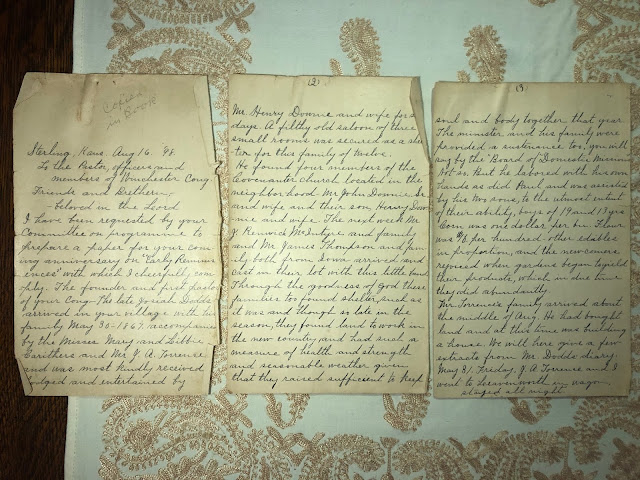 Copied
in Book
Sterling, Kans. Aug 16. '98
To the Pastor, officers and
members of Winchester Cong
Friends and Brethern
-beloved in the Lord
I have been requested by your
Committee on programme to
prepare a paper for your com-
ing anniversary on "Early Remin-
iences" with which I cheerfully com-
ply. The founder and first pastor
of your Cong- The late Josiah Dodds
arrived in your village with his
family May 30-1867 accompanied
by the Misses Mary and Libbie
Caruthers and Mr. J. A. Torrence
and was most kindly received
lodged and entertained by
(2)
Mr. Henry Downie and wife for 2
days. A filthy old saloon of three
small rooms was secured as a shel
ter for this family of twelve.
He found four members of the
Covenanter Church located in the
neighborhood. Mr John Downie, Sr.
and wife and their son, Henry Dow
nie and wife. The next week Mr
J Renwick McIntyre and family
and Mr James Thompson and fam
ily both from Iowa arrived and
cast in their lot with this little band.
Through the goodness of God these
families too found shelter, such as
it was and though so late in the
season, they found land to work in
the new country and had such a
measure of health and strength
and seasonable weather given
that they raised sufficient to keep
(3)
soul and body together that year
The minister and his family were
provided a sustenance too, you will
say by the Board of Domestic Missions
Not so. But he labored with his own
hands as did Paul and was assisted
by his two sons, to the utmost extent
of their ability, boys of 19 and 13 yrs
Corn was one dollar per bu. Flour
was $6 per hundred other edables
in proportion, and the newcomers
rejoiced when gardens began to yield
their products, which in due time
they did abundantly.
Mr. Torrence's family arrived about
the middle of Aug. He had bought
land and at this time was building
a house. We will here give a few
extracts from Mr. Dodds diary
May 31. Friday, J. A Torrence and I
went to Leavenworth in wagon
stayed all night